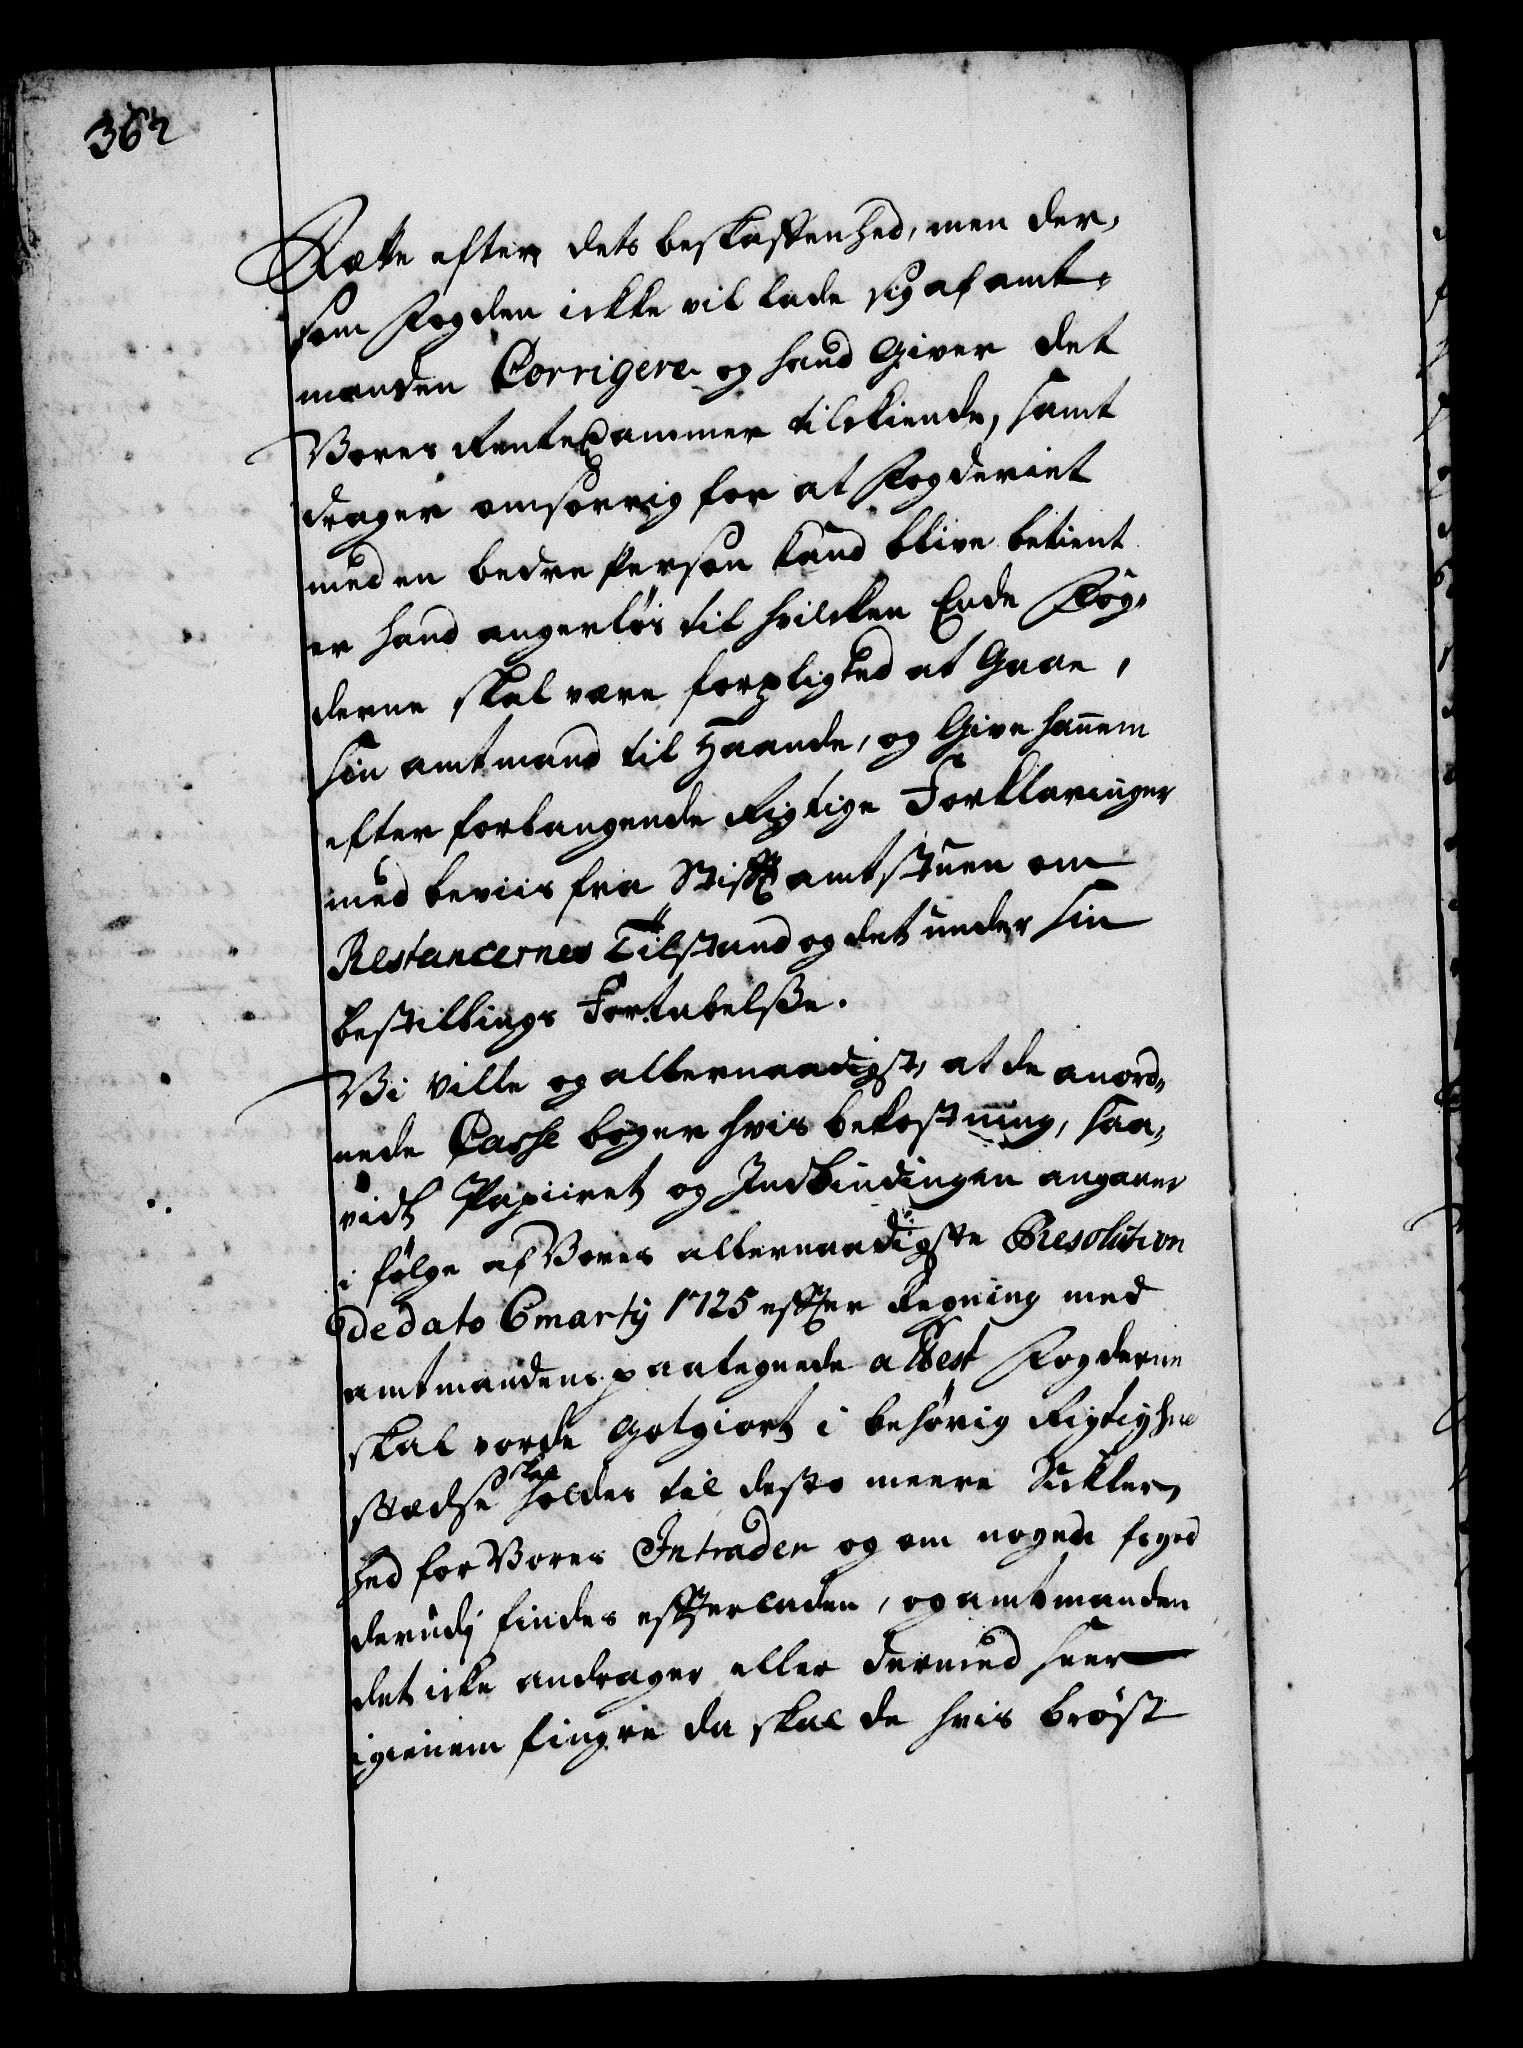 362
Rætte efter dets beskaffenhed, men der,
som Fogden ickke vil lade sig af amt,
manden Corrigere og hand Giver det
Vores RenteCammer tilkiende, samt
drager omsorrig for at Fogderiet
med en bedre Person kand blive betient
er hand angerløs til hvilcken Ende Fog,
derne skal være forpligted at Gaae,
sin amtmand til Haande, og Give hannem
efter forlangende Rigtige Forklaringer
med beviis fra Stifft amtstuen om
Restancernes Tilstand og det under sin
bestillings Fortabelsse.
Vi ville og allernaadigst, at de anord,
nede Casse bøger hvis bekostning, saa,
vidt Papiiret og Indbindingen angaaer
i følge af Vores allernaadigste Resolution
de dato 6 marty 1725 effter Regning med
amtmandens paategnede attest Fogderne
skal vorde Gotgiort i behørig Rigtighed
stædse skal holdes til desto meere Sikker,
hed for Vores Intrader og om nogen foged
derudj findes effterladen, og amtmanden
det icke andrager eller dermed seer
igienem fingre da skal de hvis brøst